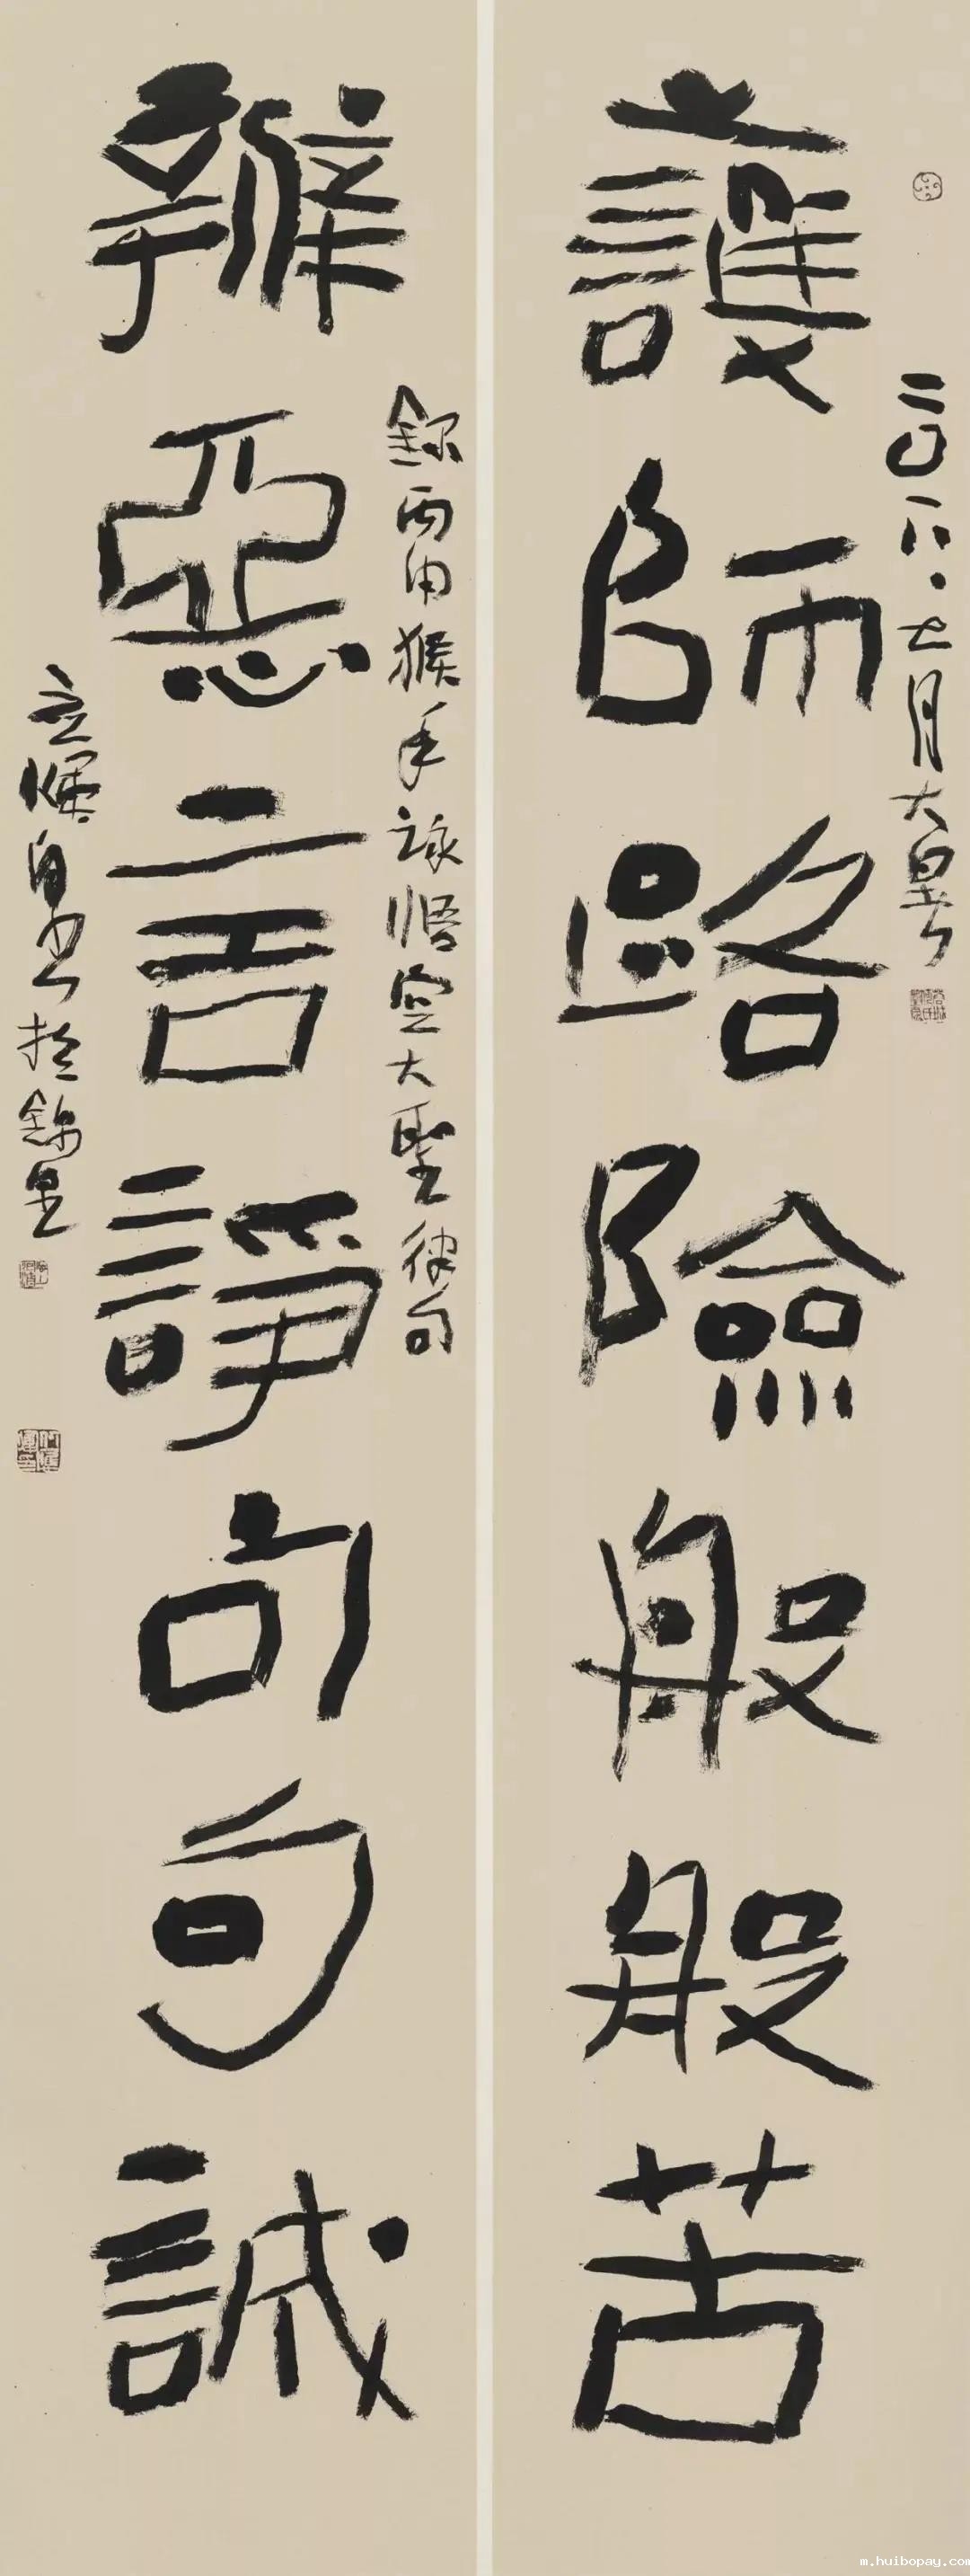 護師路險般般苦
二〇一八.七月大暑
辦惡言諍句句誠
錄丙申猴年詠悟空大聖律句
自書於錦里
m.huibopay.com